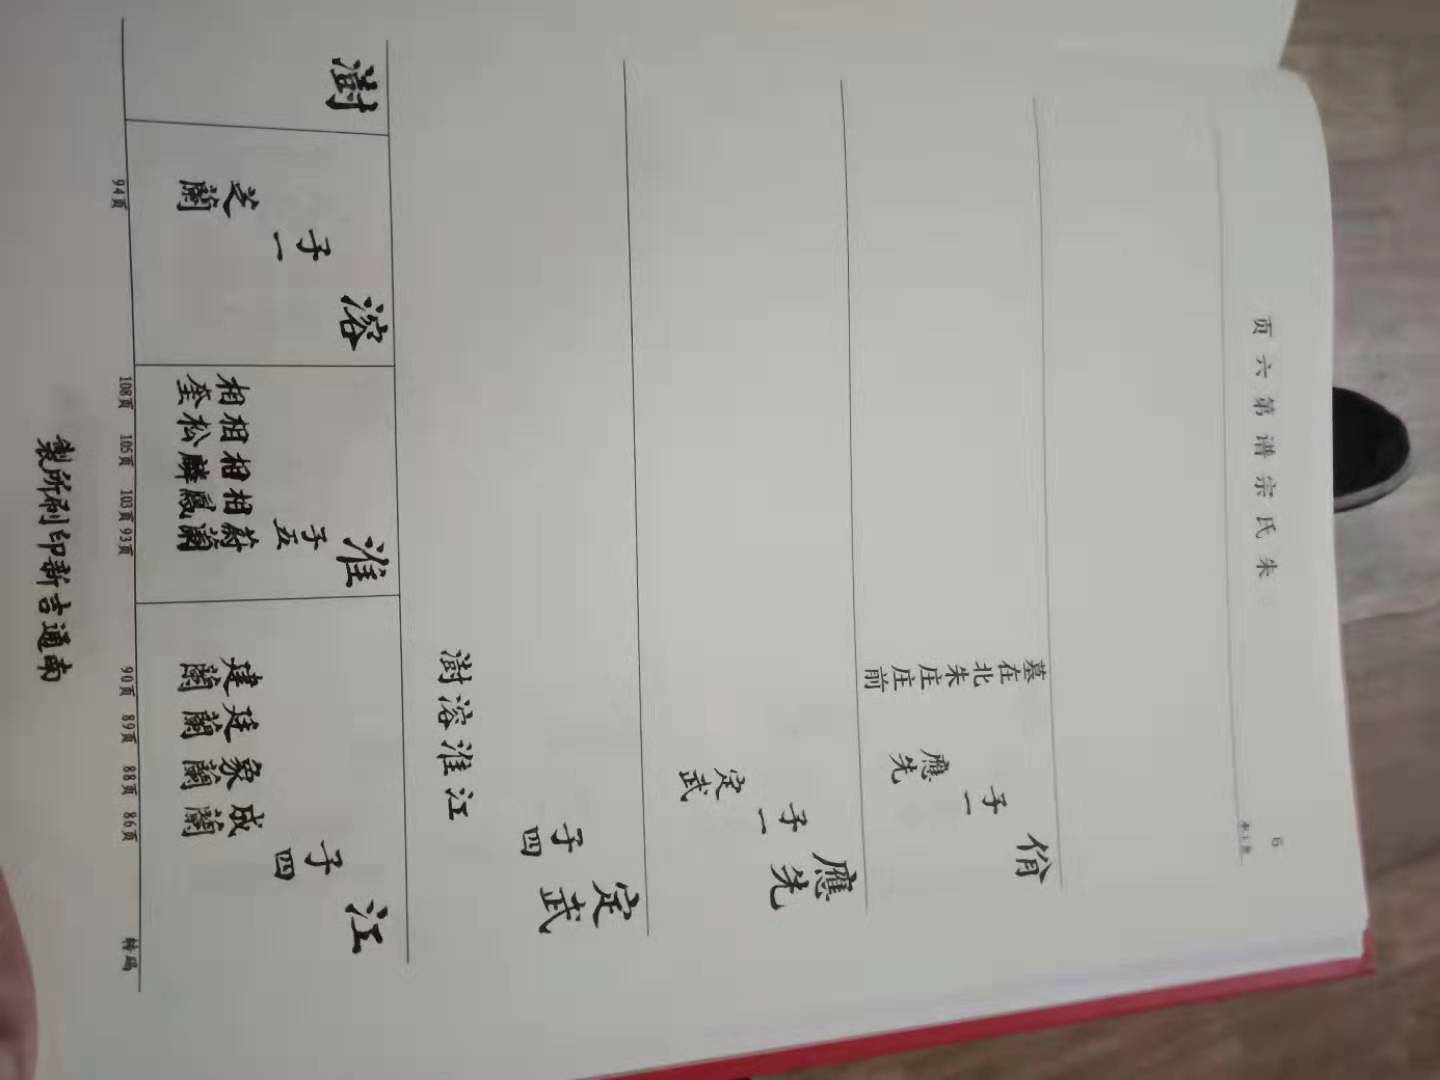 朱氏宗谱第六页
6
佾
子一
應先
墓在北朱庄庄前
應先
子一
定武
定武
子四
江
淮
溶
澍
江
子四
成蘭
象蘭
廷蘭
建蘭
淮
子五
蔚蘭
相鳳
相麟
相松
相奎
溶
子一
芝蘭
澍
86頁
88頁
89頁
90頁
93頁
103頁
105頁
108頁
94頁
南通吉新印刷所製